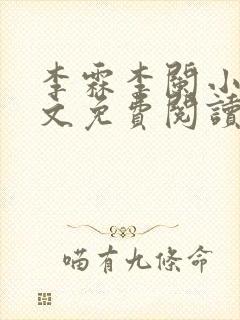 李霖李闌小
文免費閱讀
喵有九條命